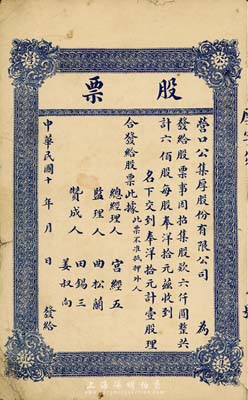 股票
營口公集厚股份有限公司 為
發給股票事因招集股欵六仟圓整共
計六佰股每股奉洋拾元茲收到
名下交到奉洋拾元計壹股理
合發給股票此據 此票不准抵押外人
總經理人 宮經五
監理人 曲松蘭
贊成人 田錫三
姜叔向
中華民國十 年 月 日 發給
上海泓盛拍卖